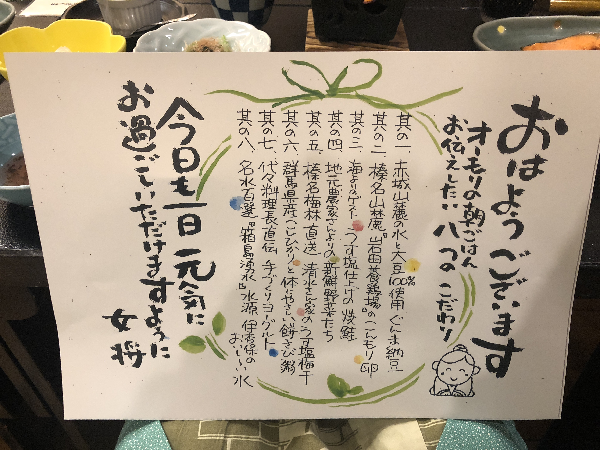 おはようございます
オーモリの朝ごはん
お伝えしたい八つのこだわり
其の一、赤城山麓の水と大豆100%使用ぐんま納豆
其の二、榛名山麓。岩田養鶏場のこんもり卵
其の三、海よりのゲスト うす塩仕上げの焼鮭
其の四、地元農家さんよりの新鮮野菜たち
其の五、榛名梅林直送 清水さん家のうす塩梅干
其の六、群馬県産こしひかりと体にやさしい餅きび粥
其の七、代々料理長直伝 手づくりヨーグルト
其の八、名水百選。"箱島湧水"水源 伊香保のおいしい水
今日も一日元気に
お過ごしいただけますように
女将